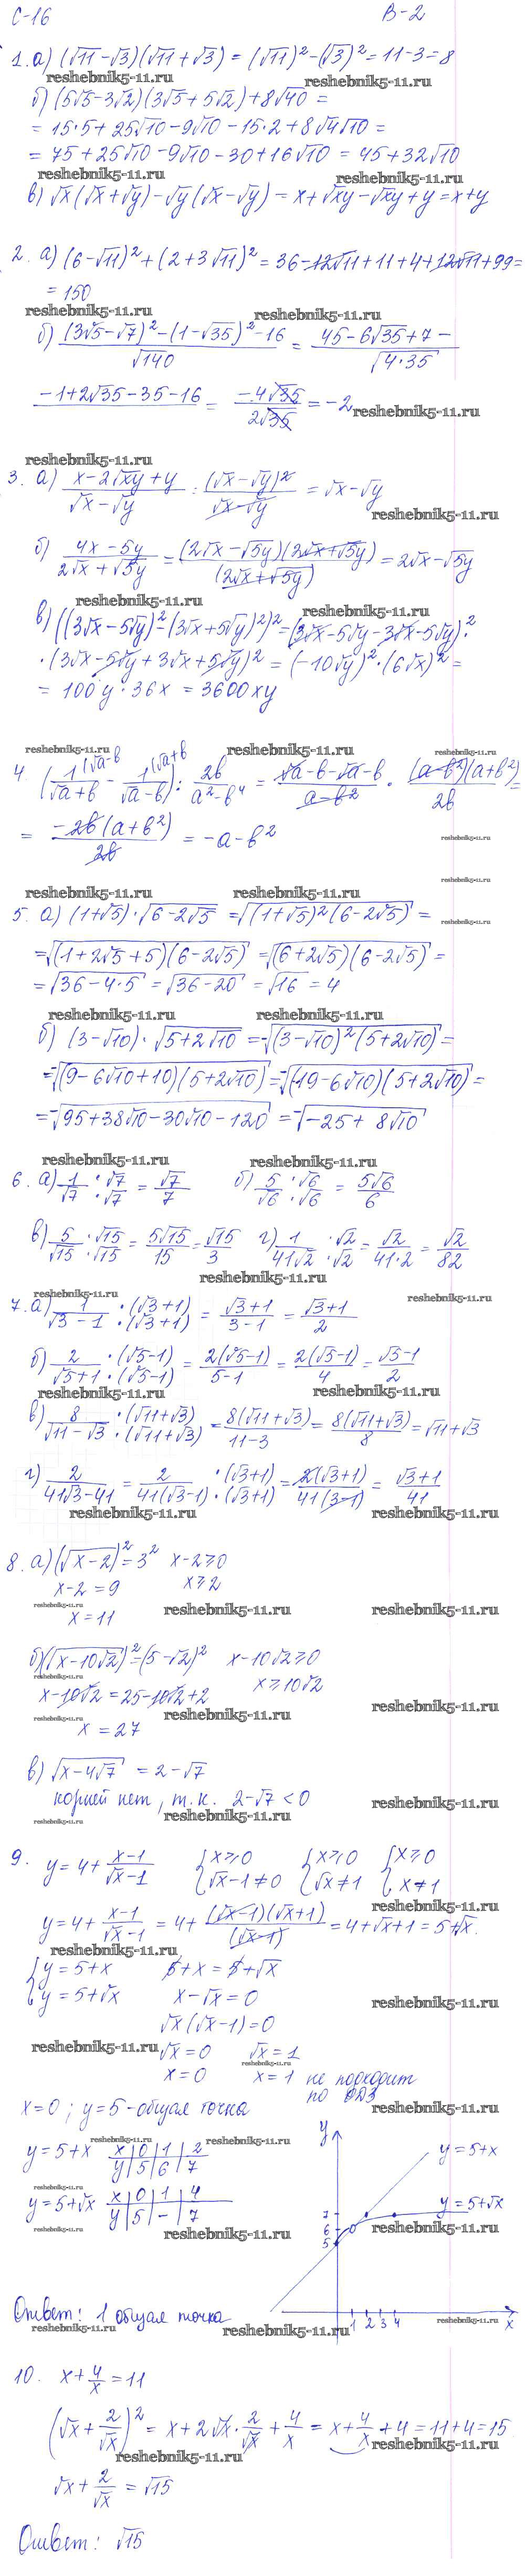 С-16 В-2
1. а) (√11-√3)(√11+√3) = (√11)²-(√3)² = 11-3=8
reshebnik5-11.ru reshebnik5-11.ru
б) (5√5-3√2)(3√5+5√2)+8√40 =
= 15·5+25√10-9√10-15·2+8√4√10 =
= 75+25√10-9√10-30+16√10 = 45+32√10
reshebnik5-11.ru reshebnik5-11.ru
в) √x(√x+√y)-√y(√x-√y) = x+√xy-√xy+y = x+y
2. а) (6-√11)²+(2+3√11)² = 36-12√11+11+4+12√11+99=
= 150
reshebnik5-11.ru reshebnik5-11.ru
б) ((3√5-√7)²-(1-√35)²-16)/√140 = (45-6√35+7-)/√4·35
(-1+2√35-35-16) = -4√35/2√35 = -2 reshebnik5-11.ru
reshebnik5-11.ru
3. а) (x-2√xy+y)/(√x-√y) = (√x-√y)²/(√x-√y) = √x-√y
reshebnik5-11.ru
б) (4x-5y)/(2√x+√5y) = (2√x-√5y)(2√x+√5y)/(2√x+√5y) = 2√x-√5y
reshebnik5-11.ru reshebnik5-11.ru
в) ((3√x-5√y)²-(3√x+5√y)²)² = (3√x-5√y-3√x-5√y)²·
·(3√x-5√y+3√x+5√y)² = (-10√y)²·(6√x)² =
= 100y·36x = 3600xy
reshebnik5-11.ru reshebnik5-11.ru
4. (1(√a-b/(√a+b) - 1(√a+b/(√a-b)) : 2b/(a²-b⁴) = (√a-b-√a-b)/(a-b²) · (a-b²)(a+b²)/2b =
= -2b(a+b²)/2b = -a-b² reshebnik5-11.ru
reshebnik5-11.ru reshebnik5-11.ru reshebnik5-11.ru
5. а) (1+√5)·√(6-2√5) = √((1+√5)²(6-2√5)) =
=√((1+2√5+5)(6-2√5)) = √((6+2√5)(6-2√5)) =
= √(36-4·5) = √(36-20) = √16 = 4
reshebnik5-11.ru reshebnik5-11.ru
б) (3-√10)·√(5+2√10) = -√((3-√10)²(5+2√10)) =
=-√((9-6√10+10)(5+2√10)) = -√((19-6√10)(5+2√10)) =
= -√(95+38√10-30√10-120) = -√(-25+8√10)
reshebnik5-11.ru reshebnik5-11.ru
6. а) 1/√7 ·√7/·√7 = √7/7 б) 5/√6 ·√6/·√6 = 5√6/6
в) 5/√15 ·√15/·√15 = 5√15/15 = √15/3 г) 1/41√2 ·√2/·√2 = √2/41·2 = √2/82
reshebnik5-11.ru
reshebnik5-11.ru reshebnik5-11.ru
7. а) 1/(√3-1) ·(√3+1)/·(√3+1) = (√3+1)/(3-1) = (√3+1)/2
б) 2/(√5+1) ·(√5-1)/·(√5-1) = 2(√5-1)/(5-1) = 2(√5-1)/4 = (√5-1)/2
reshebnik5-11.ru reshebnik5-11.ru
в) 8/(√11-√3) ·(√11+√3)/·(√11+√3) = 8(√11+√3)/(11-3) = 8(√11+√3)/8 = √11+√3
г) 2/(41√3-41) = 2/(41(√3-1)) ·(√3+1)/·(√3+1) = 2(√3+1)/(41(3-1)) = (√3+1)/41
reshebnik5-11.ru reshebnik5-11.ru reshebnik5-11.ru
8. а) (√(x-2))² = 3² x-2⩾0
x-2 = 9 x⩾2
reshebnik5-11.ru reshebnik5-11.ru reshebnik5-11.ru
x = 11
б) (√(x-10√2))² = (5-√2)² x-10√2⩾0
reshebnik5-11.ru
x-10√2 = 25-10√2+2 x⩾10√2
reshebnik5-11.ru reshebnik5-11.ru reshebnik5-11.ru
x = 27
в) √(x-4√7) = 2-√7
корней нет, т.к. 2-√7 < 0
reshebnik5-11.ru reshebnik5-11.ru reshebnik5-11.ru
9. y = 4+(x-1)/(√x-1) {x⩾0 {x⩾0 {x⩾0
√x-1≠0 √x≠1 x≠1
reshebnik5-11.ru
y = 4+(x-1)/(√x-1) = 4+(√x-1)(√x+1)/(√x-1) = 4+√x+1 = 5+√x.
reshebnik5-11.ru
{y = 5+x 5+x = 5+√x
y = 5+√x x-√x = 0
reshebnik5-11.ru
√x(√x-1)=0
reshebnik5-11.ru √x=0 √x=1
reshebnik5-11.ru
x=0 x=1 не подходит
по ОДЗ
x=0; y=5-общая точка reshebnik5-11.ru
y
reshebnik5-11.ru reshebnik5-11.ru
y=5+x x|0|1|2 y=5+x
y|5|6|7
reshebnik5-11.ru
y=5+√x x|0|1|4 y=5+√x
y|5|-|7
reshebnik5-11.ru reshebnik5-11.ru reshebnik5-11.ru
7
6
5
Ответ: 1 общая точка
reshebnik5-11.ru reshebnik5-11.ru reshebnik5-11.ru
1 2 3 4 x
10. x+4/x = 11
(√x+2/√x)² = x+2√x·2/√x+4/x = x+4/x+4 = 11+4=15
reshebnik5-11.ru reshebnik5-11.ru
√x+2/√x = √15
Ответ: √15